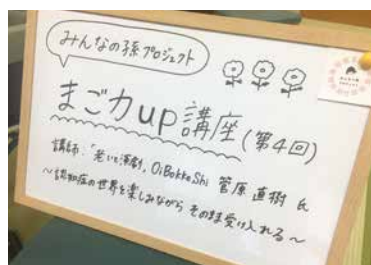 みんなの孫プロジェクト
まご力up講座(第4回)
講師:「老いと演劇」OiBokkeShi 菅原 直樹 氏
〜認知症の世界を楽しみながら そのまま受け入れる〜